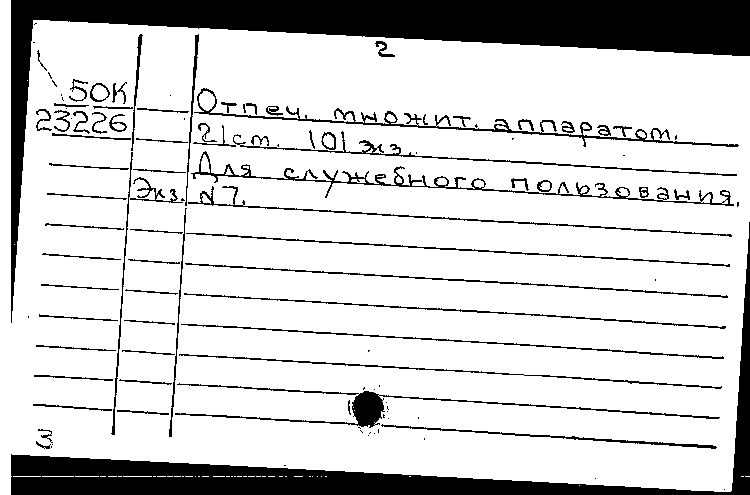 2
50К
23226
Отпеч. множит. аппаратом.
2|ст. 101 экз.
Для служебного пользования.
Экз. N7.
3